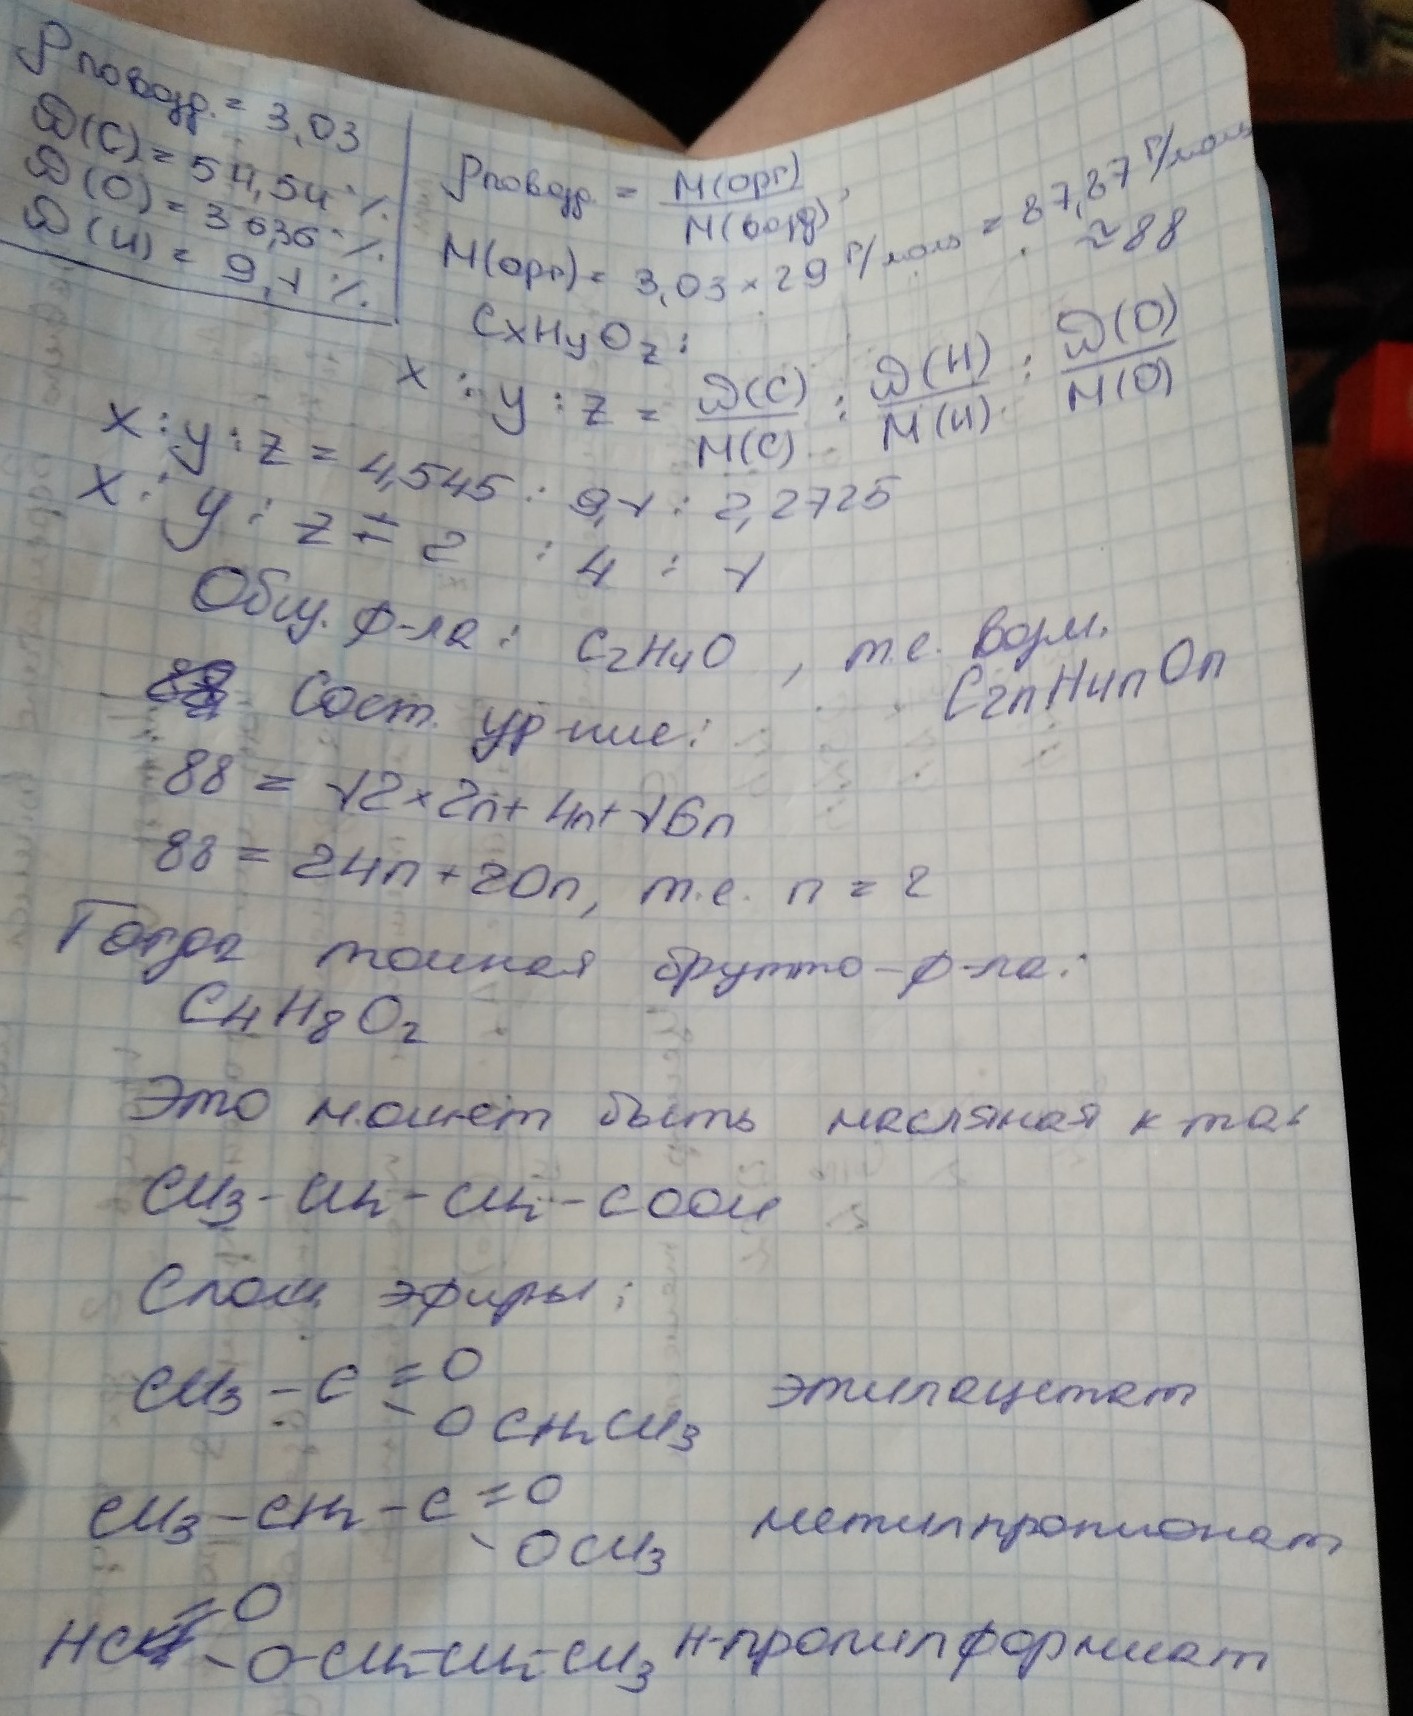 ρ по возд. = 3,03
ω(C) = 54,54 %
ω(O) = 36,36 %
ω(H) = 9,1 %
ρ по возд. = M(орг)/M(возд),
M(орг) = 3,03 × 29 г/моль = 87,87 г/моль
≈ 88
CxHyOz:
x : y : z = ω(C)/M(C) : ω(H)/M(H) : ω(O)/M(O)
x : y : z = 4,545 : 9,1 : 2,2725
x : y : z = 2 : 4 : 1
Общ. ф-ла: C2H4O, т.е. возм.
C2nH4nOn
Сост. ур-ние:
88 = 12×2n + 4n + 16n
88 = 24n + 20n, т.е. n = 2
Тогда точная брутто-ф-ла:
C4H8O2
Это может быть масляная к-та:
CH3 - CH2 - CH2 - COOH
Слож. эфиры:
CH3 - C =O
-OCH2CH3 этилацетат
CH3 - CH2 - C =O
-OCH3 метилпропионат
HC =O
-O-CH2-CH2-CH3 н-пропилформиат